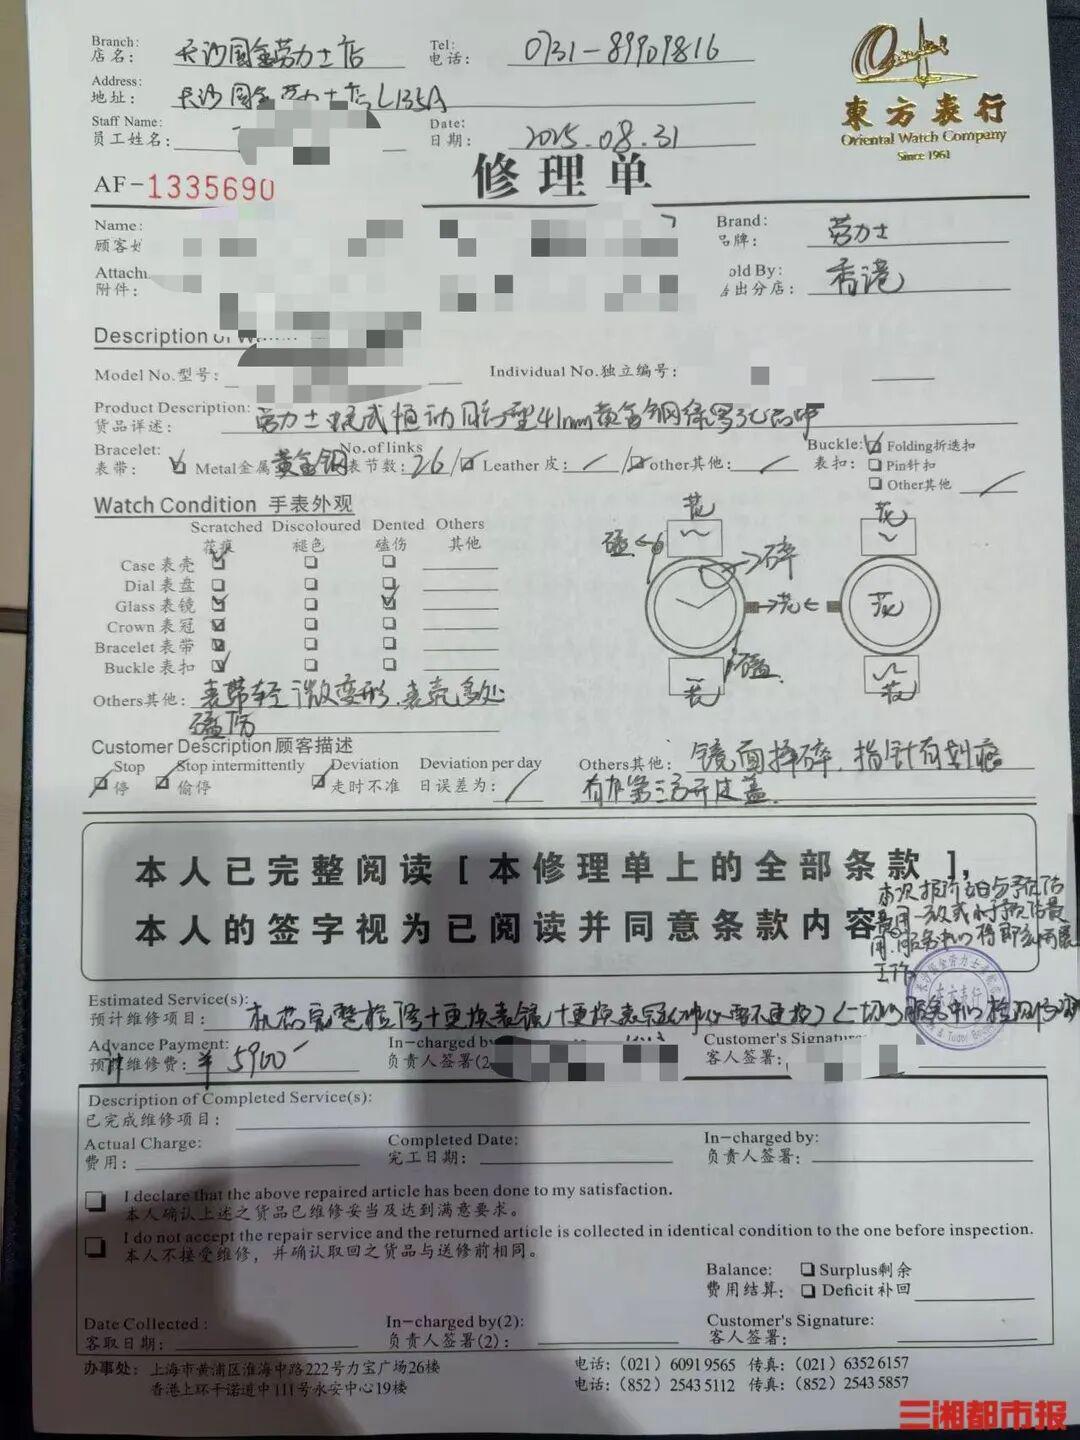 Branch:
店名： 长沙国金劳力士店
Tel:
电话： 0731-89909816
Address:
地址： 长沙国金劳力士店L135A
Staff Name:
员工姓名：
Date:
日期： 2025.08.31
東方表行
Oriental Watch Company
Since 1961
AF-1335690
修理单
Name:
顾客
Brand:
品牌： 劳力士
Attach
附件：
old By:
售出分店： 香港
Description of
Model No.型号：
Individual No.独立编号：
Product Description:
货品详述： 劳力士 恒动 41mm黄金钢
Bracelet:
表带： Metal金属 黄金钢
No.of links
表节数： 26
Leather 皮：
other其他：
Buckle:
表扣：
Folding折迭扣
Pin针扣
Other其他
Watch Condition 手表外观
Scratched Discoloured Dented Others
花痕 褪色 磕伤 其他
Case 表壳
Dial 表盘
Glass 表镜
Crown 表冠
Bracelet 表带
Buckle 表扣
Others其他： 表带轻微变形、表壳多处
磕伤
花
磕
碎
花
磕
花
花
花
花
Customer Description 顾客描述
Stop
停
Stop intermittently
偷停
Deviation
走时不准
Deviation per day
日误差为：
Others其他： 镜面摔碎、指针有划痕
有加第三方开底盖.
本人已完整阅读［本修理单上的全部条款］，
本人的签字视为已阅读并同意条款内容
本次报价若与预估
费用一致或小于预估费
用，服务中心将即刻开展
工作
东方表行
Estimated Service(s):
预计维修项目： 机芯完整检修+更换表镜+更换表冠 服务中心检测
Advance Payment:
预计维修费： ￥5900
In-charged by
负责人签署(2
Customer's Signature
客人签署：
Description of Completed Service(s):
已完成维修项目：
Actual Charge:
费用：
Completed Date:
完工日期：
In-charged by:
负责人签署：
I declare that the above repaired article has been done to my satisfaction.
本人确认上述之货品已维修妥当及达到满意要求。
I do not accept the repair service and the returned article is collected in identical condition to the one before inspection.
本人不接受维修，并确认取回之货品与送修前相同。
Balance:
费用结算：
Surplus剩余
Deficit 补回
Date Collected :
客取日期：
In-charged by(2):
负责人签署(2)：
Customer's Signature:
客人签署：
办事处： 上海市黄浦区淮海中路222号力宝广场26楼
电话：(021) 6091 9565 传真：(021) 6352 6157
香港上环干诺道中111号永安中心19楼
电话：(852) 2543 5112 传真：(852) 2543 5857
三湘都市报